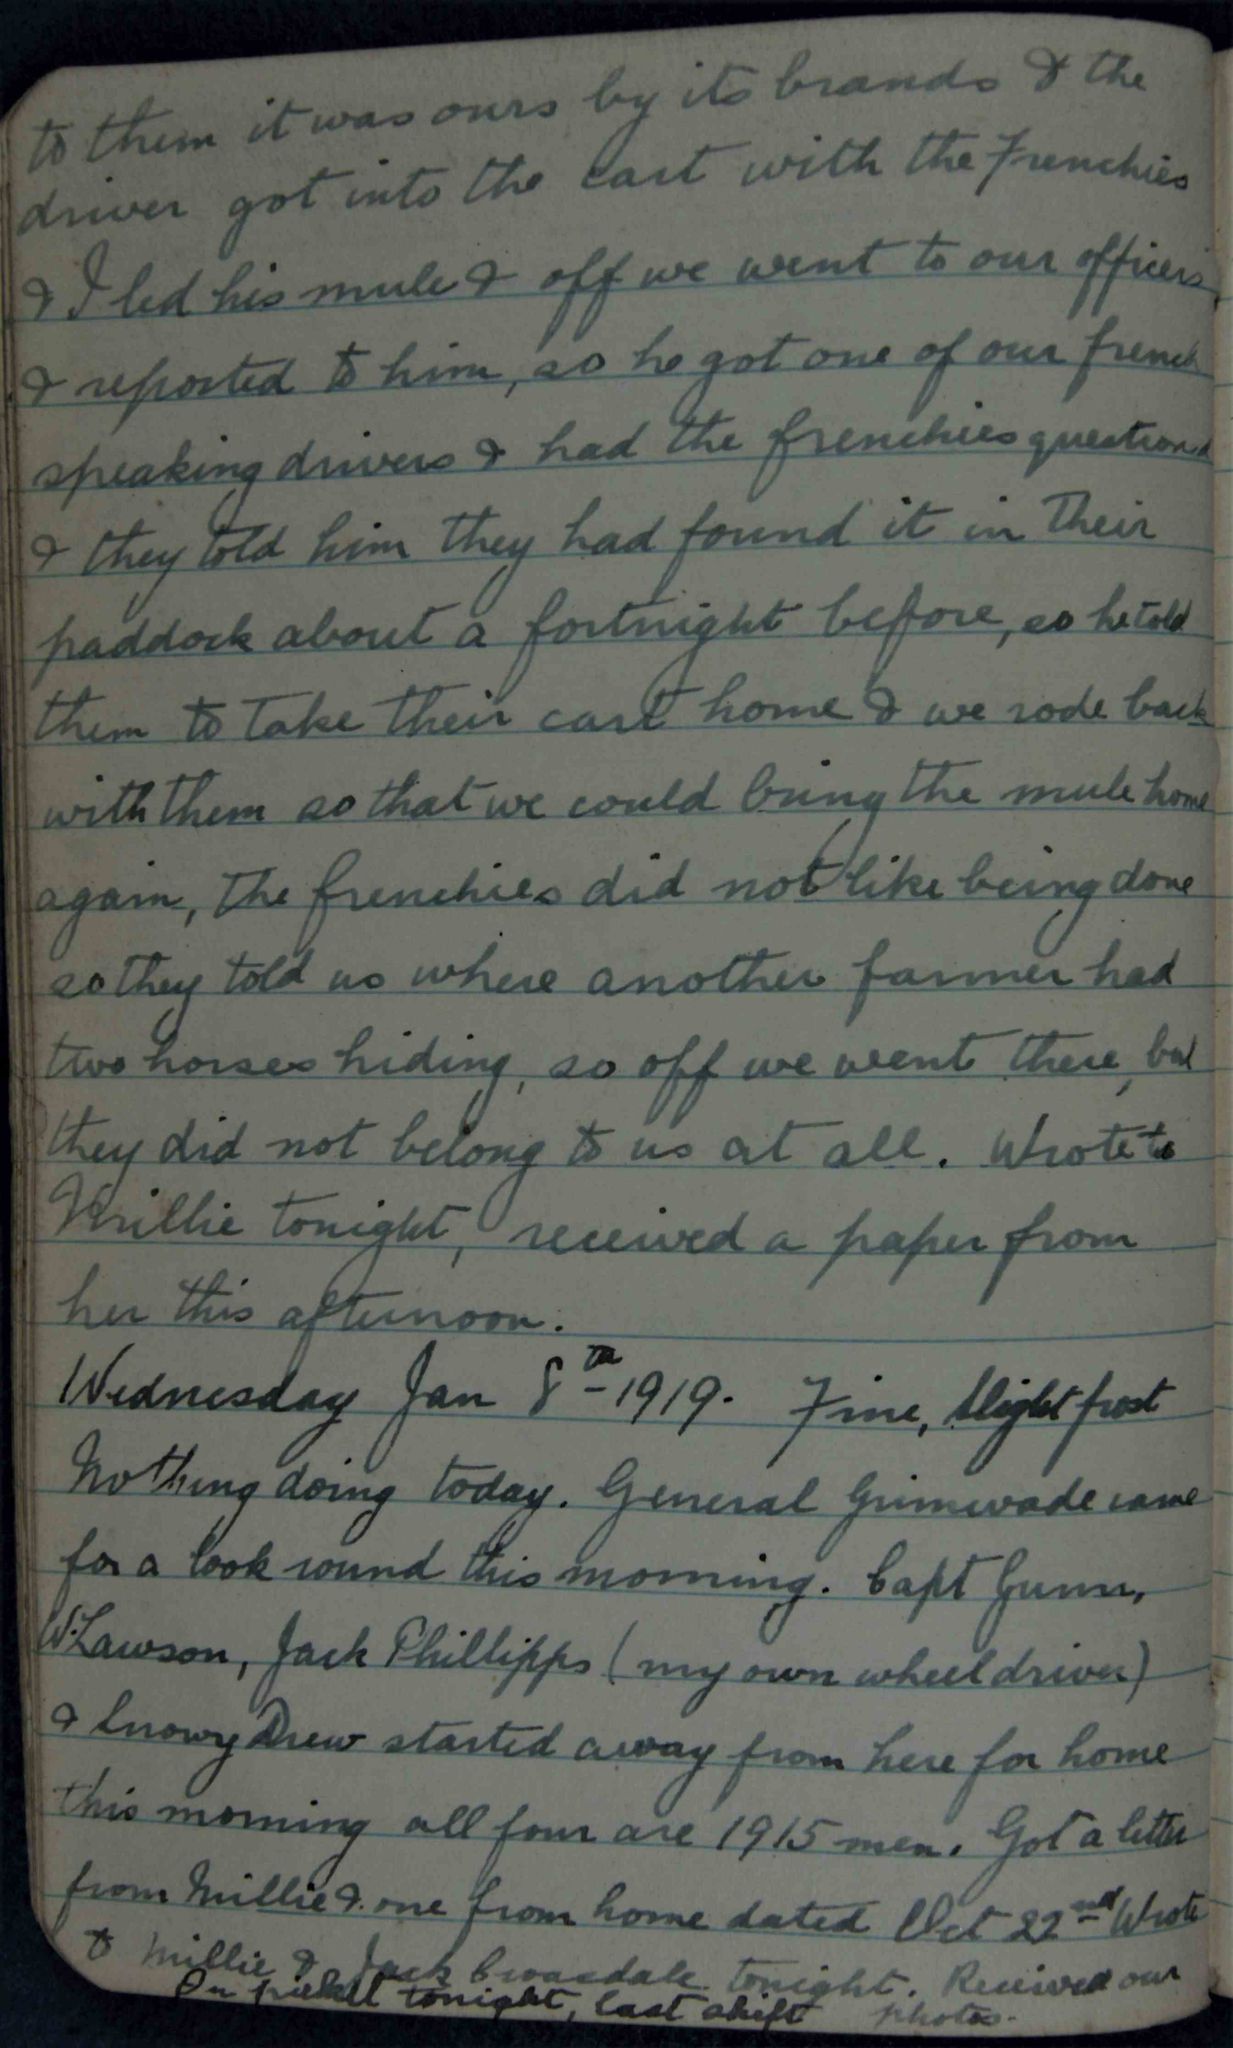 to them it was ours by its brands & the
driver got into the cart with the Frenchies
& I led his mule & off we went to our officers
& reported to him, so he got one of our french
speaking drivers & had the frenchies questioned
& they told him they had found it in Their
paddock about a fortnight before, so he told
them to take their cart home & we rode back
with them so that we could bring the mule home
again, the frenchies did not like being done
so they told us where another farmer had
two horses hiding, so off we went there, but
they did not belong to us at all. Wrote to
Millie tonight, received a paper from
her this afternoon.
Wednesday Jan 8th 1919. Fine, slight frost
Nothing doing today. General Grimwade came
for a look round this morning. Capt Gunn,
W. Lawson, Jack Phillipps (my own wheel driver)
& Snowy Drew started away from here for home
this morning all four are 1915 men. Got a letter
from Millie & one from home dated Oct 22nd Wrote
to Millie & Jack tonight. Received our
On picket tonight, last shift photos.